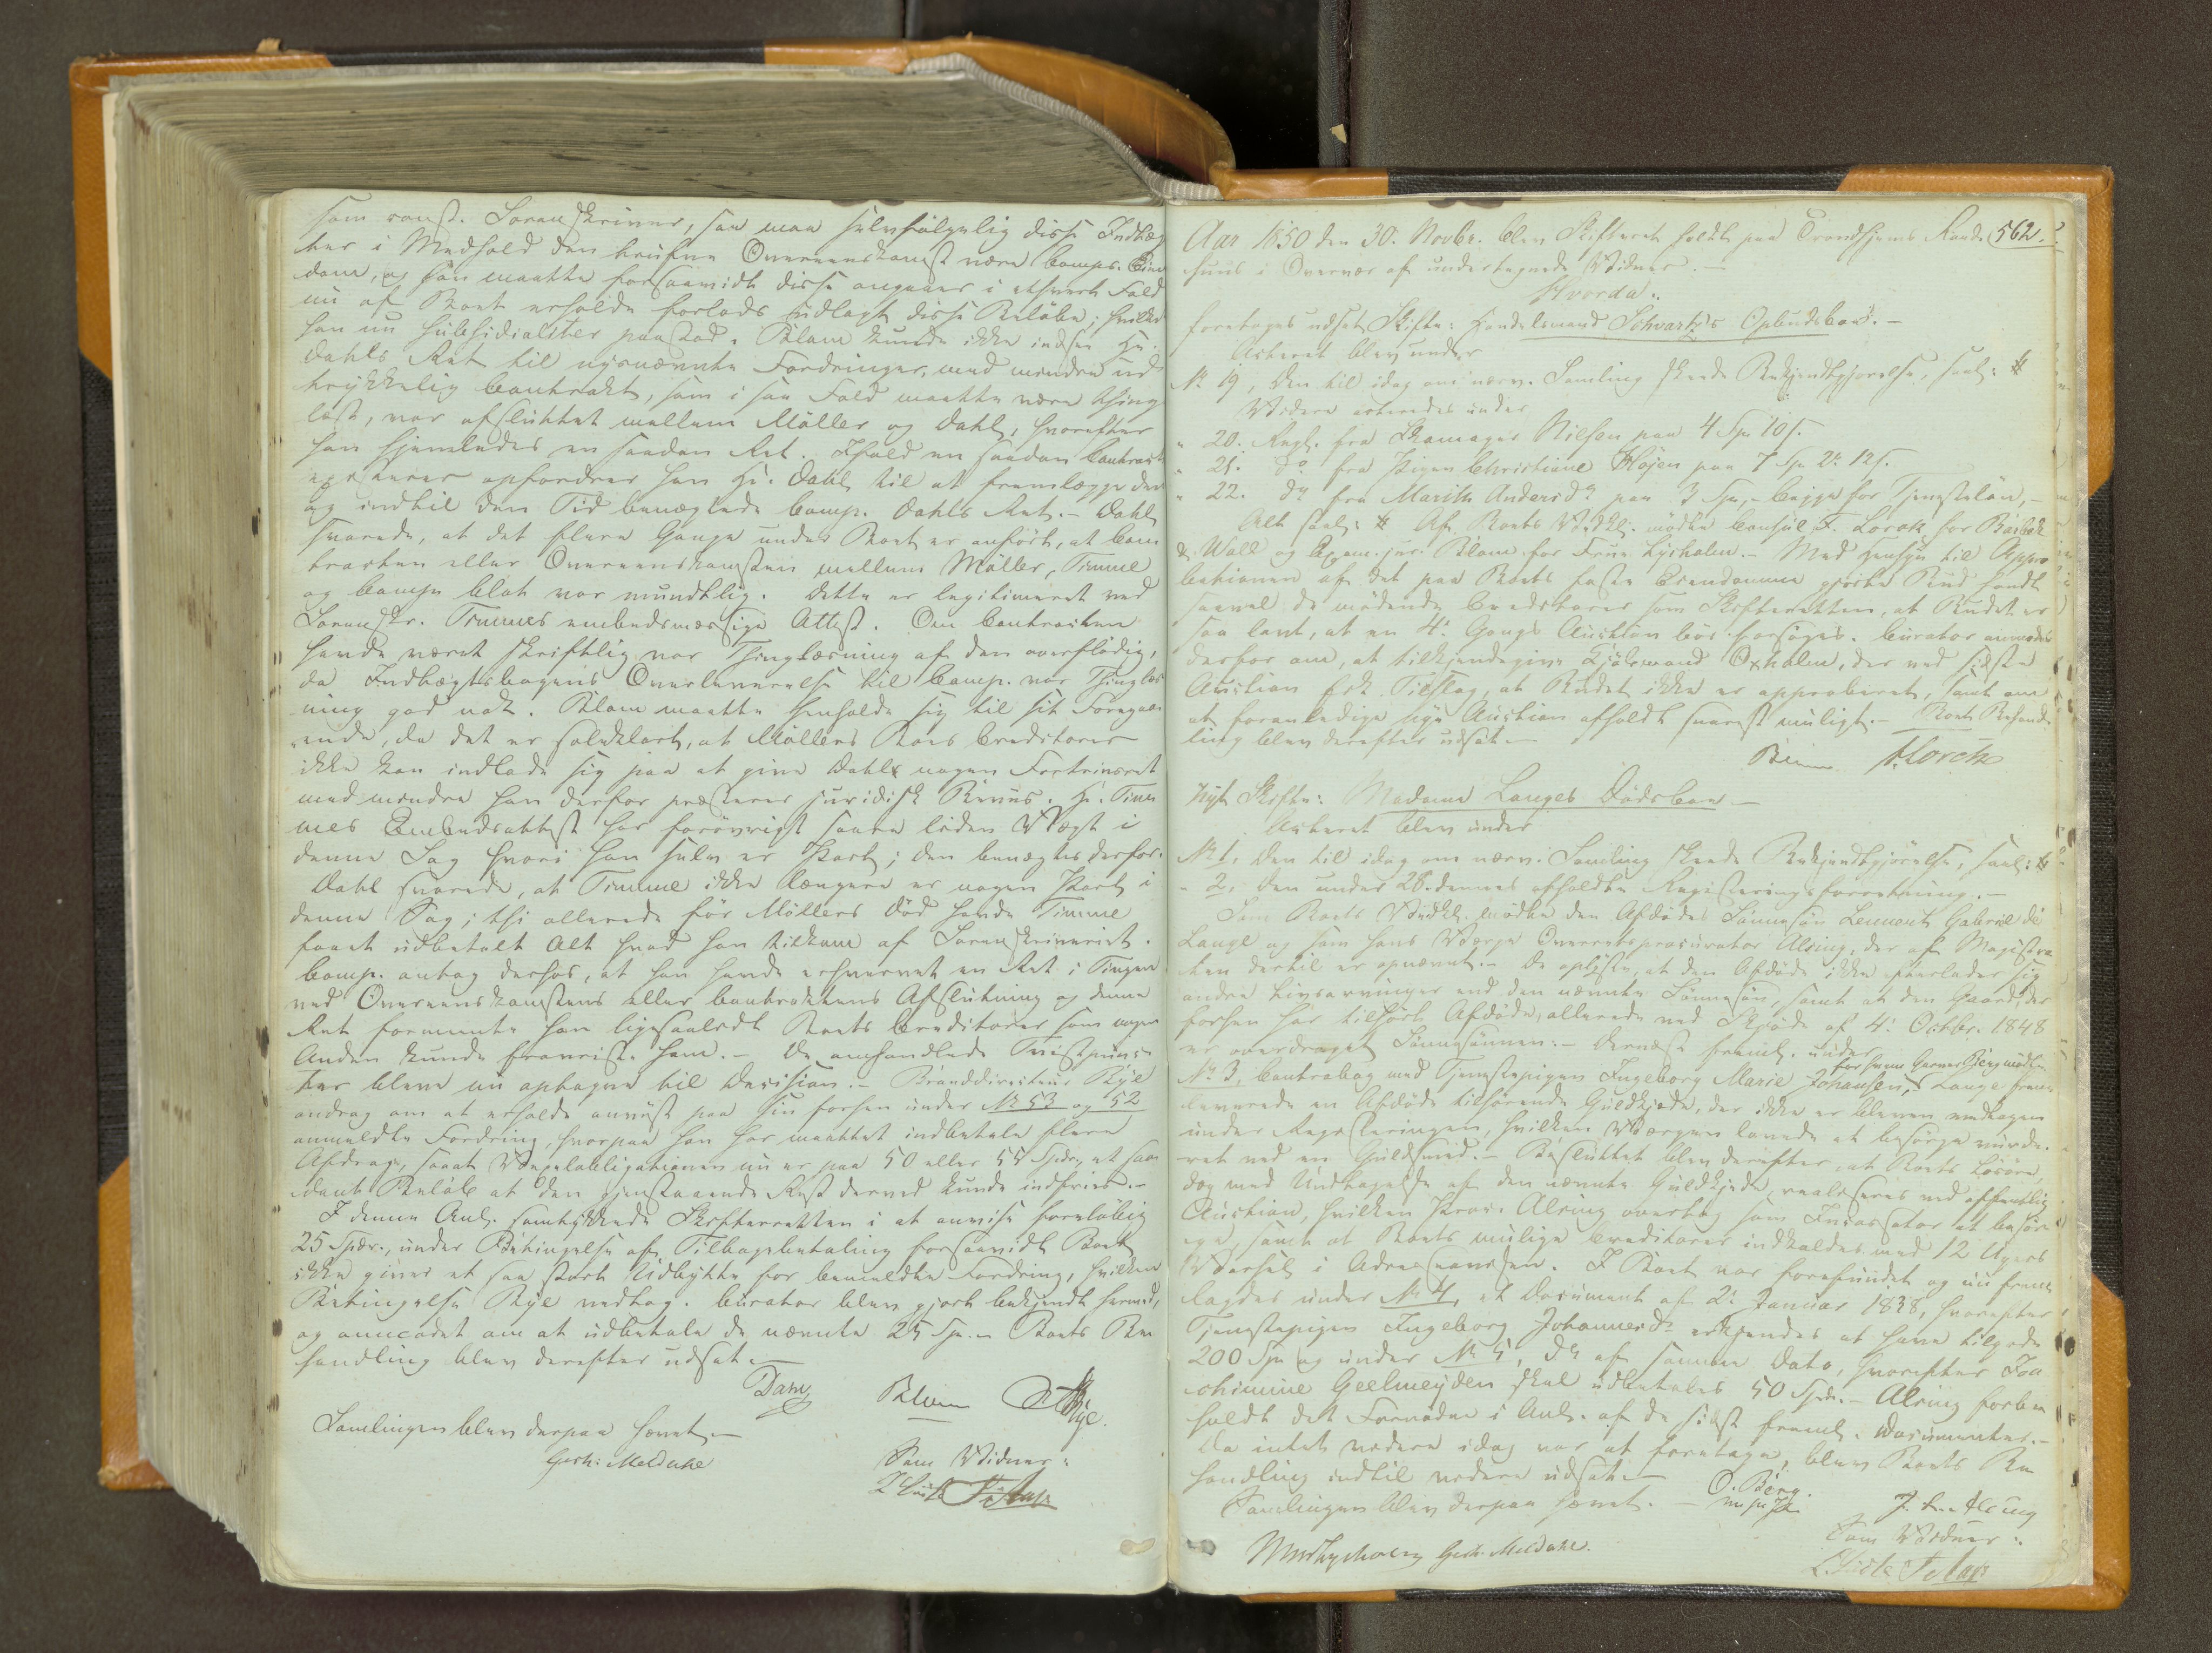 som const. Sorenskriver, saa maa selvfølgelig disse Indtæg
ter i Medhold den trufne Overeenskomst være Comps. Eien
dom, og han maatte forsaavidt disse angaaer i ethvert Fald
nu af Boet erholde forlods udlagt disse Beløbe; hvilket
han nu subsidialiter paastod. Blom kunde ikke indsee Hr.
Dahls Ret til nysnævnte Fordringer, med mindre ud
trykkelig Contrakt, som i saa Fald maatte være thing
læst, var afsluttet mellem Møller og Dahl, hvorefter
han hjemledes en saadan Ret. Ifald en saadan Contract
existerer opfordrer han Hr. Dahl til at fremlægge den
og indtil den Tid benægtede Comp. Dahls Ret. – Dahl
svarede, at det flere Gange under Boet er anført, at Con
tracten eller Overeenskomsten mellem Møller, Timme
og Comps blot var mundtlig. Dette er legitimeret ved
Sorenskr. Timmes embedsmæssige Attest. Om Contracten
havde været skriftlig var Thinglæsning af den overflødig,
da Indtægtsbogens Overleverelse til Comp. var Thinglæs
ning god nok. Blom maatte henholde sig til sit Foregaa
ende, da det er soleklart, at Møllers Boes Creditorer
ikke kan indlade sig paa at give Dahl nogen Fortrinsret
med mindre han derfor præsterer juridisk Beviis. Hr. Tim
mes Embedsattest har forøvrigt saare liden Vægt i
denne Sag hvori han selv er Part; den benægtes derfor.
Dahl svarede, at Timme ikke længere er nogen Part i
denne Sag; thi allerede før Møllers Død havde Timme
faaet udbetalt Alt hvad han tilkom af Sorenskriveriet.
Comp. antog derhos, at han havde erhvervet en Ret i Tingen
ved Overeenskomstens eller Contraktens Afslutning og denne
Ret formeente han ligesaalidt Boets Creditorer som nogen
Anden kunde fravriste ham. – De omhandlede Tvistepunc
ter bleve nu optagne til Decision. – Branddirecteur Rye
androg om at erholde anviist paa sin forhen under No 53 og 52
anmeldte Fordring, hvorpaa han har maattet indbetale flere
Afdrag, saaat Vexelobligationen nu er paa 50 eller 55 Spdr., et saa
dant Beløb at den gjenstaaende Rest derved kunde indfries. –
I denne Anl. samtykkede Skifteretten i at anvise foreløbig
25 Spdr., under Betingelse af Tilbagebetaling forsaavidt Boet
ikke giver et saa stort Udbytte for bemeldte Fordring, hvilken
Betingelse Rye vedtog. Curator blev gjort bekjendt hermed,
og anmodet om at udbetale de nævnte 25 Sp. – Boets Be
handling blev derefter udsat. –
Dahl Blom Rye.
Samlingen blev derpaa hævet. –
Gerh: Meldahl Som Vidner:
Aar 1850 den 30. Novbr. blev Skifteret holdt paa Trondhjems Raad 562.
huus i Overvær af undertegnede Vidner. –
Hvorda:
foretoges udsat Skifte: Handelsmand Schvartz's Opbudsboe. –
Acteret blev under
No 19, den til idag om nærv. Samling skeede Bekjendtgjørelse, saal: #
Videre acteredes under
" 20. Regl. fra Skomager Nilsen paa 4 Sp 10 s.
" 21. do fra Pigen Christiane Højen paa 7 Sp 2 # 12 s.
" 22. do fra Marith Andersdr paa 3 Sp, – begge for Tjenesteløn, –
Alt saal: # Af Boets Vedk. mødte Consul F. Lorck for Barbek
& Wall og Exam. jur. Blom for Frue Lysholm. – Med Hensyn til Appro
bationen af det paa Boets faste Eiendomme gjorte Bud fandt
saavel de mødende Creditorer som Skifteretten, at Budet er
saa lavt, at en 4de Gangs Auction bør forsøges. Curator anmodes
derfor om, at tilkjendegive Kjøbmand Oxholm, der ved sidste
Auction fik Tilslag, at Budet ikke er approberet, samt om
at foranledige nye Auction afholdt snarest muligt. – Boets Behand
ling blev derefter udsat. –
Blom F. Lorck
Nyt Skifte: Madame Langes Dødsboe –
Acteret blev under
No 1, den til idag om nærv. Samling skeede Bekjendtgjørelse, saal: #
" 2, den under 28. dennes afholdte Registreringsforretning. –
Som Boets Vedk. mødte den Afdødes Sønnesøn Lennart Gabriel du
Lange og som hans Værge Overretsprocurator Alsing, der af Magistra
ten dertil er opnævnt. – De oplyste, at den Afdøde ikke efterlader sig
andre Livsarvinger end den nævnte Sønnesøn, samt at den Gaard, der
forhen har tilhørt Afdøde, allerede ved Skjøde af 4de Octbr. 1848
er overdraget Sønnesønnen. – Dernæst freml. under
No 3, Contrabog med Tjenestepigen Ingeborg Marie Johansen, for hvem Garver Berg mødte. Lange frem
leverede en Afdøde tilhørende Guldkjæde, der ikke er bleven medtagen
under Registreringen, hvilken Værgen lovede at besørge vurde
ret ved en Guldsmed. – Besluttet blev derefter, at Boets Løsøre,
dog med Undtagelse af den nævnte Guldkjæde, realiseres ved offentlig
Auction, hvilken Proc. Alsing overtog som Incassator at besør
ge, samt at Boets mulige Creditorer indkaldes med 12 Ugers
Varsel i Adresseavisen. I Boet var forefundet og nu frem
lagdes under No 4, et Document af 2de Januar 1838, hvorefter
Tjenestepigen Ingeborg Johannesdr erkjendes at have tilgode
200 Sp og under No 5, do af samme Dato, hvorefter Joa
chimine Geelmeyden skal udbetales 50 Spdr. – Alsing forbe
holdt det Fornødne i Anl. af de sidst freml. Documenter. –
Da intet videre idag var at foretage, blev Boets Be
handling indtil videre udsat. –
Samlingen blev derpaa hævet. O. Berg.
m. p. P.
Gerh: Meldahl. Som Vidner: